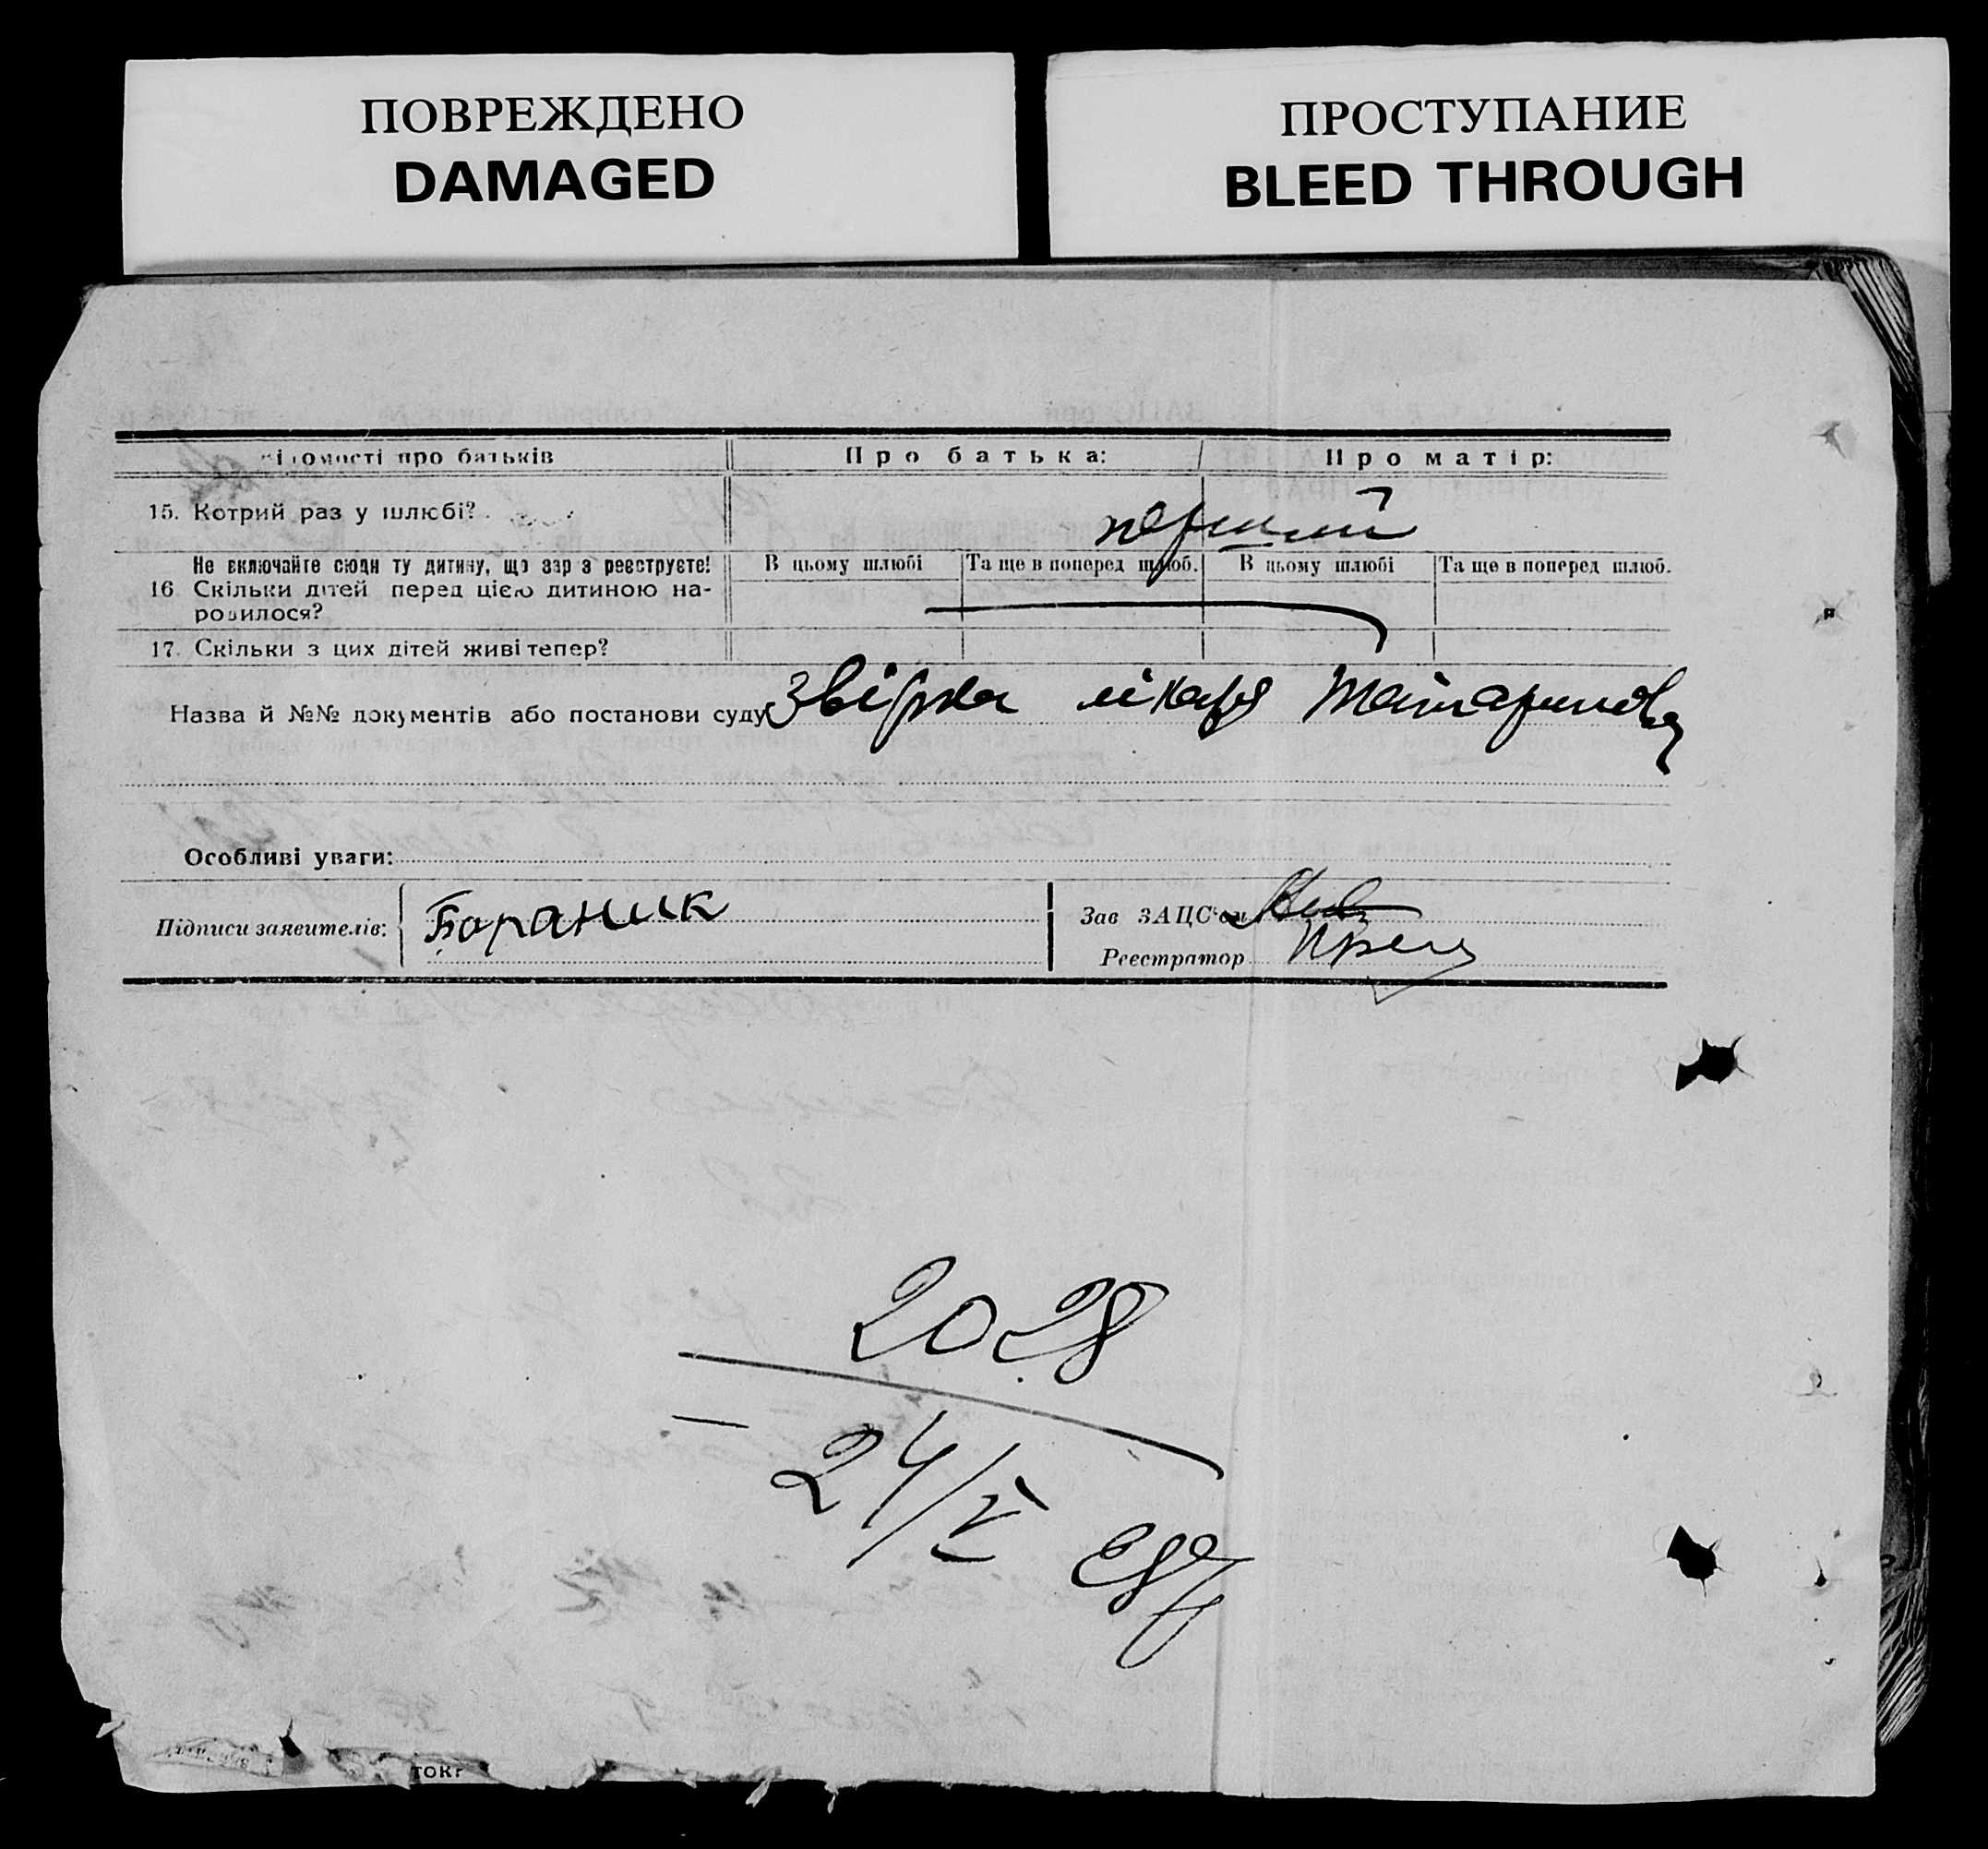 ПОВРЕЖДЕНО
DAMAGED
ПРОСТУПАНИЕ
BLEED THROUGH
ідомості про батьків
Про батька:
Про матір:
15. Котрий раз у шлюбі?
перший
Не включайте сюди ту дитину, що зар з реєструєте!
16 Скільки дітей перед цією дитиною на-
родилося?
В цьому шлюбі
Та ще в поперед шлюб.
В цьому шлюбі
Та ще в поперед шлюб.
17. Скільки з цих дітей живі тепер?
Назва й №№ документів або постанови суду Звірка лікаря Татаринова
Особливі уваги:
Підписи заявителів:
Бораник
Зав ЗАЦС'ом
Реєстратор
2028
24/V
ТОК